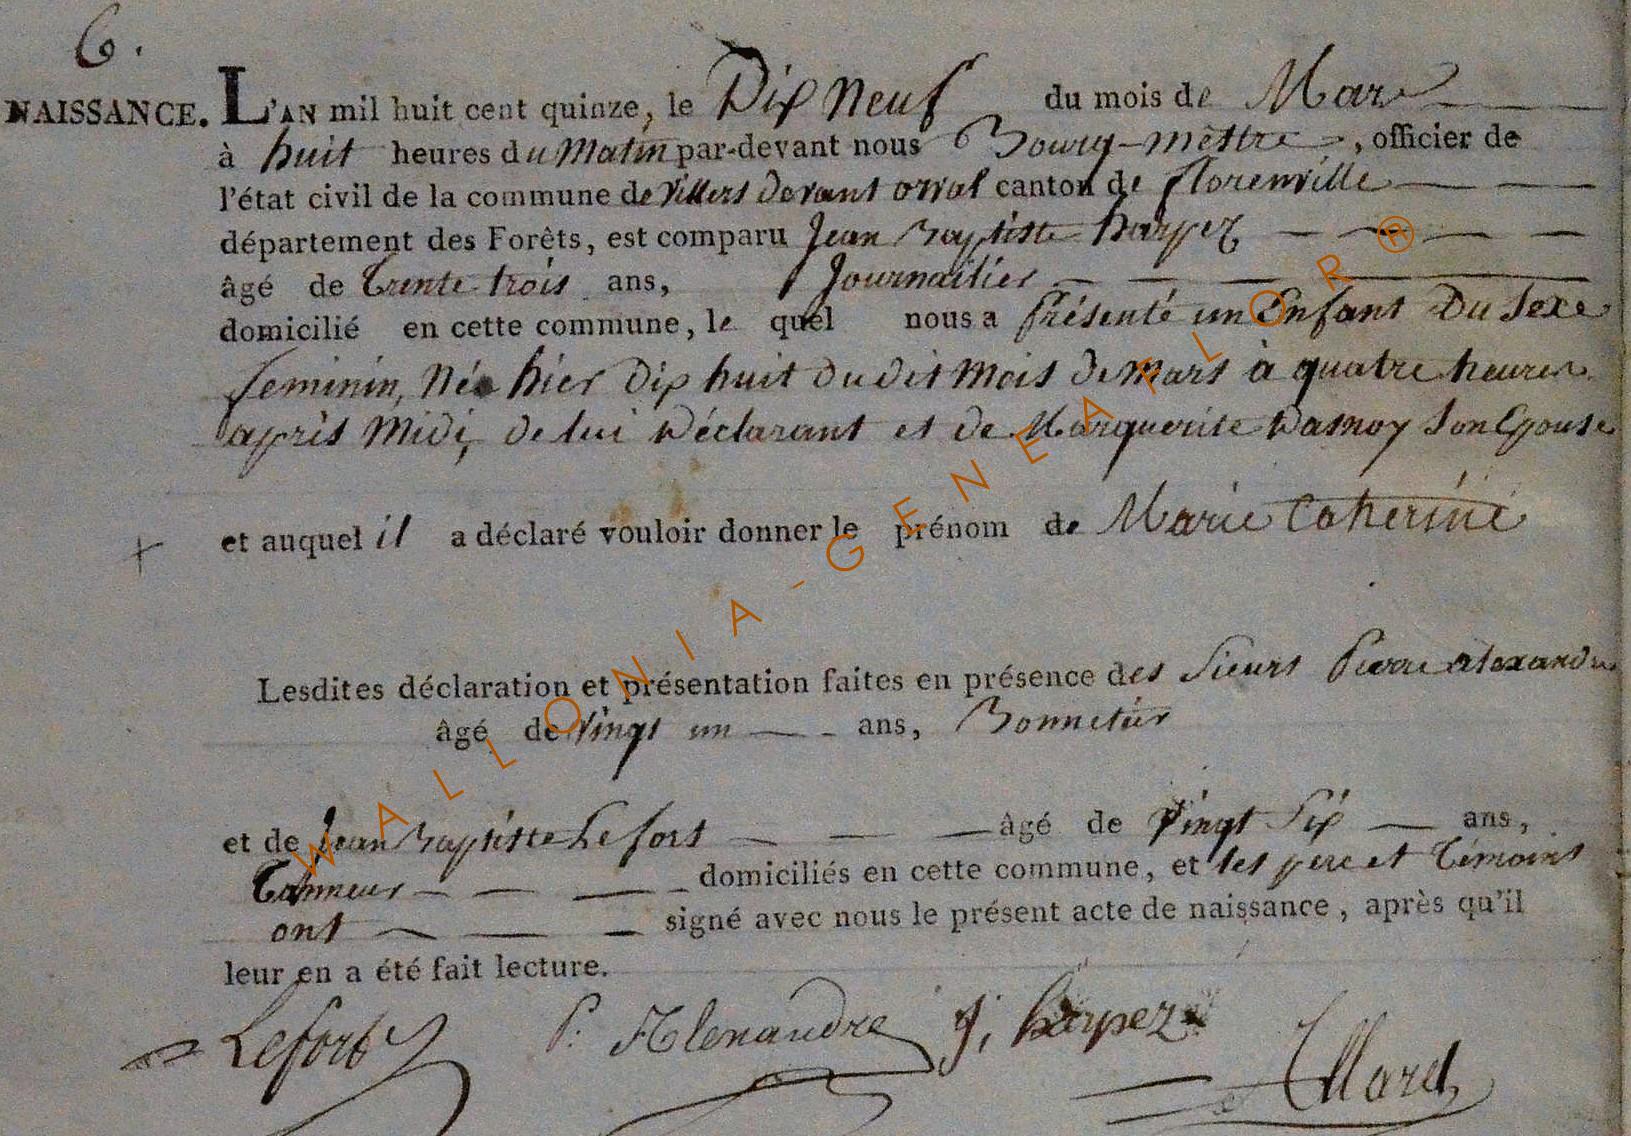 6.
NAISSANCE. L'AN mil huit cent quinze, le Dix Neuf du mois de Mars
à huit heures du Matin par-devant nous Bourg-mettre, officier de
l'état civil de la commune de Villers devant orval canton de florenville
département des Forêts, est comparu Jean Baptiste harpez
âgé de Trente trois ans, Journailier
domicilié en cette commune, le quel nous a Présenté un Enfant Du Sexe
feminin, Née hier Dix huit du dit Mois de Mars à quatre heures
après Midi, de lui Déclarant et de Marguerite Wasnoy Son Epouse
et auquel il a déclaré vouloir donner le prénom de Marie Catherine
Lesdites déclaration et présentation faites en présence des Sieurs Pierre alexandre
âgé de Vingt un ans, Bonnetier
et de Jean Baptiste Lefort âgé de Vingt Six ans,
Tanneur domiciliés en cette commune, et les pere et Témoins
ont signé avec nous le présent acte de naissance, après qu'il
leur en a été fait lecture.
Lefort P. Alexandre J, harpez
WALLONIA-GENEAFLOR®